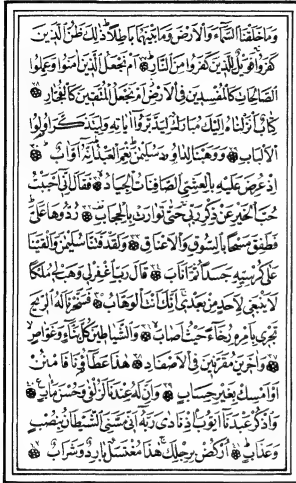 وَمَا خَلَقْنَا السَّمَاءَ وَالْأَرْضَ وَمَا بَيْنَهُمَا بَاطِلًا ذَٰلِكَ ظَنُّ الَّذِينَ
كَفَرُوا فَوَيْلٌ لِلَّذِينَ كَفَرُوا مِنَ النَّارِ ۞ أَمْ نَجْعَلُ الَّذِينَ آمَنُوا وَعَمِلُوا
الصَّالِحَاتِ كَالْمُفْسِدِينَ فِي الْأَرْضِ أَمْ نَجْعَلُ الْمُتَّقِينَ كَالْفُجَّارِ ۞
كِتَابٌ أَنْزَلْنَاهُ إِلَيْكَ مُبَارَكٌ لِيَدَّبَّرُوا آيَاتِهِ وَلِيَتَذَكَّرَ أُولُوا
الْأَلْبَابِ ۞ وَوَهَبْنَا لِدَاوُدَ سُلَيْمٰنَ نِعْمَ الْعَبْدُ إِنَّهُ أَوَّابٌ ۞
إِذْ عُرِضَ عَلَيْهِ بِالْعَشِيِّ الصَّافِنَاتُ الْجِيَادُ ۞ فَقَالَ إِنِّي أَحْبَبْتُ
حُبَّ الْخَيْرِ عَنْ ذِكْرِ رَبِّي حَتَّىٰ تَوَارَتْ بِالْحِجَابِ ۞ رُدُّوهَا عَلَيَّ
فَطَفِقَ مَسْحًا بِالسُّوقِ وَالْأَعْنَاقِ ۞ وَلَقَدْ فَتَنَّا سُلَيْمٰنَ وَأَلْقَيْنَا
عَلَىٰ كُرْسِيِّهِ جَسَدًا ثُمَّ أَنَابَ ۞ قَالَ رَبِّ اغْفِرْ لِي وَهَبْ لِي مُلْكًا
لَا يَنْبَغِي لِأَحَدٍ مِنْ بَعْدِي إِنَّكَ أَنْتَ الْوَهَّابُ ۞ فَسَخَّرْنَا لَهُ الرِّيحَ
تَجْرِي بِأَمْرِهِ رُخَاءً حَيْثُ أَصَابَ ۞ وَالشَّيَاطِينَ كُلَّ بَنَّاءٍ وَغَوَّاصٍ
۞ وَآخَرِينَ مُقَرَّنِينَ فِي الْأَصْفَادِ ۞ هَٰذَا عَطَاؤُنَا فَامْنُنْ
أَوْ أَمْسِكْ بِغَيْرِ حِسَابٍ ۞ وَإِنَّ لَهُ عِنْدَنَا لَزُلْفَىٰ وَحُسْنَ مَآبٍ ۞
وَاذْكُرْ عَبْدَنَا أَيُّوبَ إِذْ نَادَىٰ رَبَّهُ أَنِّي مَسَّنِيَ الشَّيْطَانُ بِنُصْبٍ
وَعَذَابٍ ۞ ارْكُضْ بِرِجْلِكَ هَٰذَا مُغْتَسَلٌ بَارِدٌ وَشَرَابٌ ۞